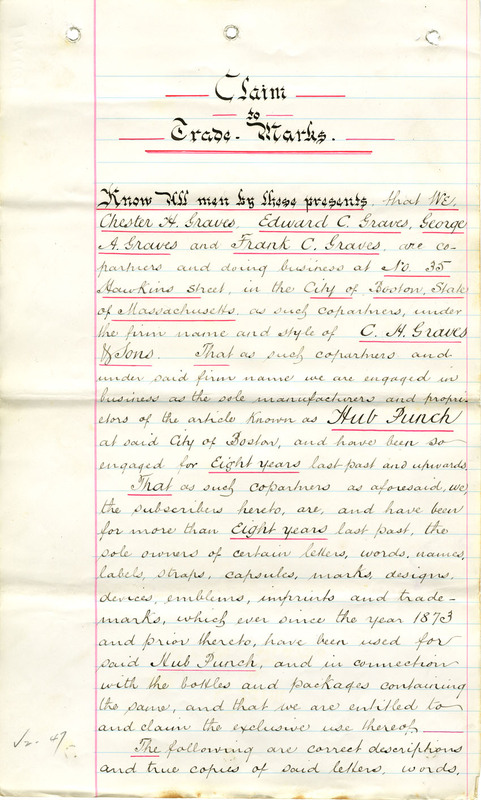 Claim
to
Trade-Marks.
Know All men by these presents. that We,
Chester H. Graves, Edward C. Graves, George
A. Graves and Frank C. Graves, are co-
partners and doing business at No. 35
Hawkins street, in the City of Boston, State
of Massachusetts, as such copartners, under
the firm name and style of C. H. Graves
& Sons. That as such copartners and
under said firm name we are engaged in
business as the sole manufacturers and propri-
etors of the article known as Hub Punch
at said City of Boston, and have been so
engaged for Eight years last past and upwards.
That as such copartners as aforesaid, we,
the subscribers hereto, are, and have been
for more than Eight years last past, the
sole owners of certain letters, words, names,
labels, straps, capsules, marks, designs,
devices, emblems, imprints and trade-
marks, which ever since the year 1873
and prior thereto, have been used for
said Hub Punch, and in connection
with the bottles and packages containing
the same, and that we are entitled to
and claim the exclusive use thereof.
The following are correct descriptions
and true copies of said letters, words,
47